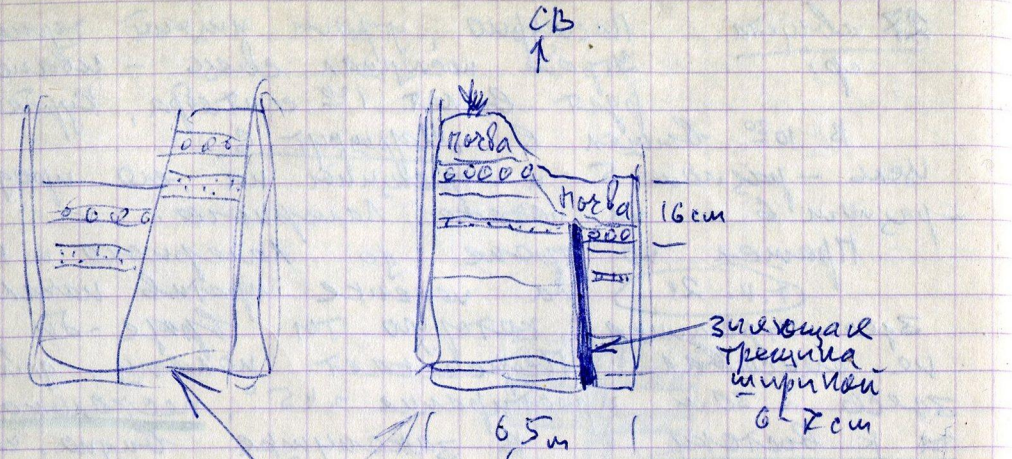 СВ
почва
почва
16 см
зияющая
трещина
шириной
6-7 см
6,5 м